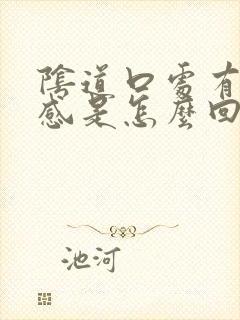 陰道口處有
感是怎麼回
池河